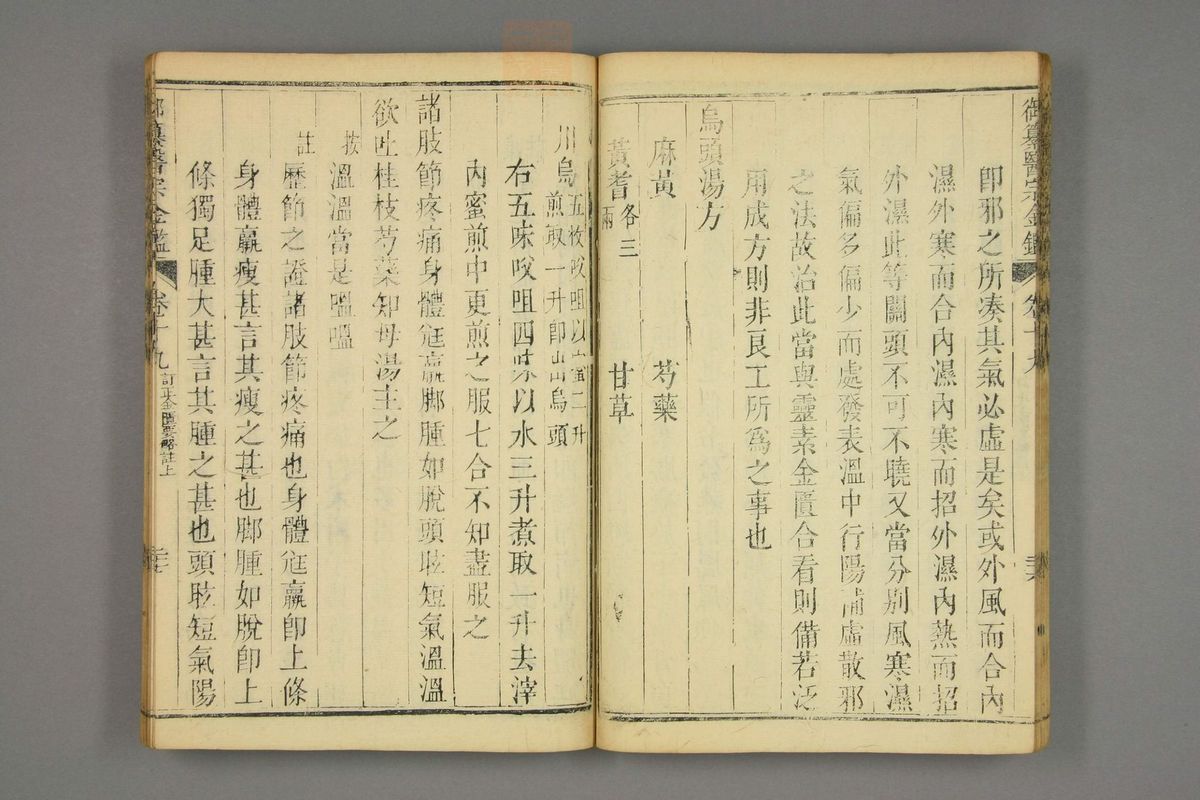 御纂醫宗金鑑 卷十九
即邪之所凑其氣必虛是矣或外風而合內
濕外寒而合內濕內寒而招外濕內熱而招
外濕此等關頭不可不曉又當分別風寒濕
氣偏多偏少而處發表溫中行陽補虛散邪
之法故治此當與靈素金匱合看則備若泛
用成方則非良工所爲之事也
烏頭湯方
麻黃 芍藥
黃耆各三兩 甘草
川烏五枚㕮咀以蜜二升
煎取一升即出烏頭
右五味㕮咀四味以水三升煮取一升去滓
內蜜煎中更煎之服七合不知盡服之
諸肢節疼痛身體尫羸脚腫如脫頭眩短氣溫溫
欲吐桂枝芍藥知母湯主之
按 溫溫當是嗢嗢
註 歷節之證諸肢節疼痛也身體尫羸即上條
身體羸瘦甚言其瘦之甚也脚腫如脫即上
條獨足腫大甚言其腫之甚也頭眩短氣陽
御纂醫宗金鑑 卷十九 訂正金匱要略註上